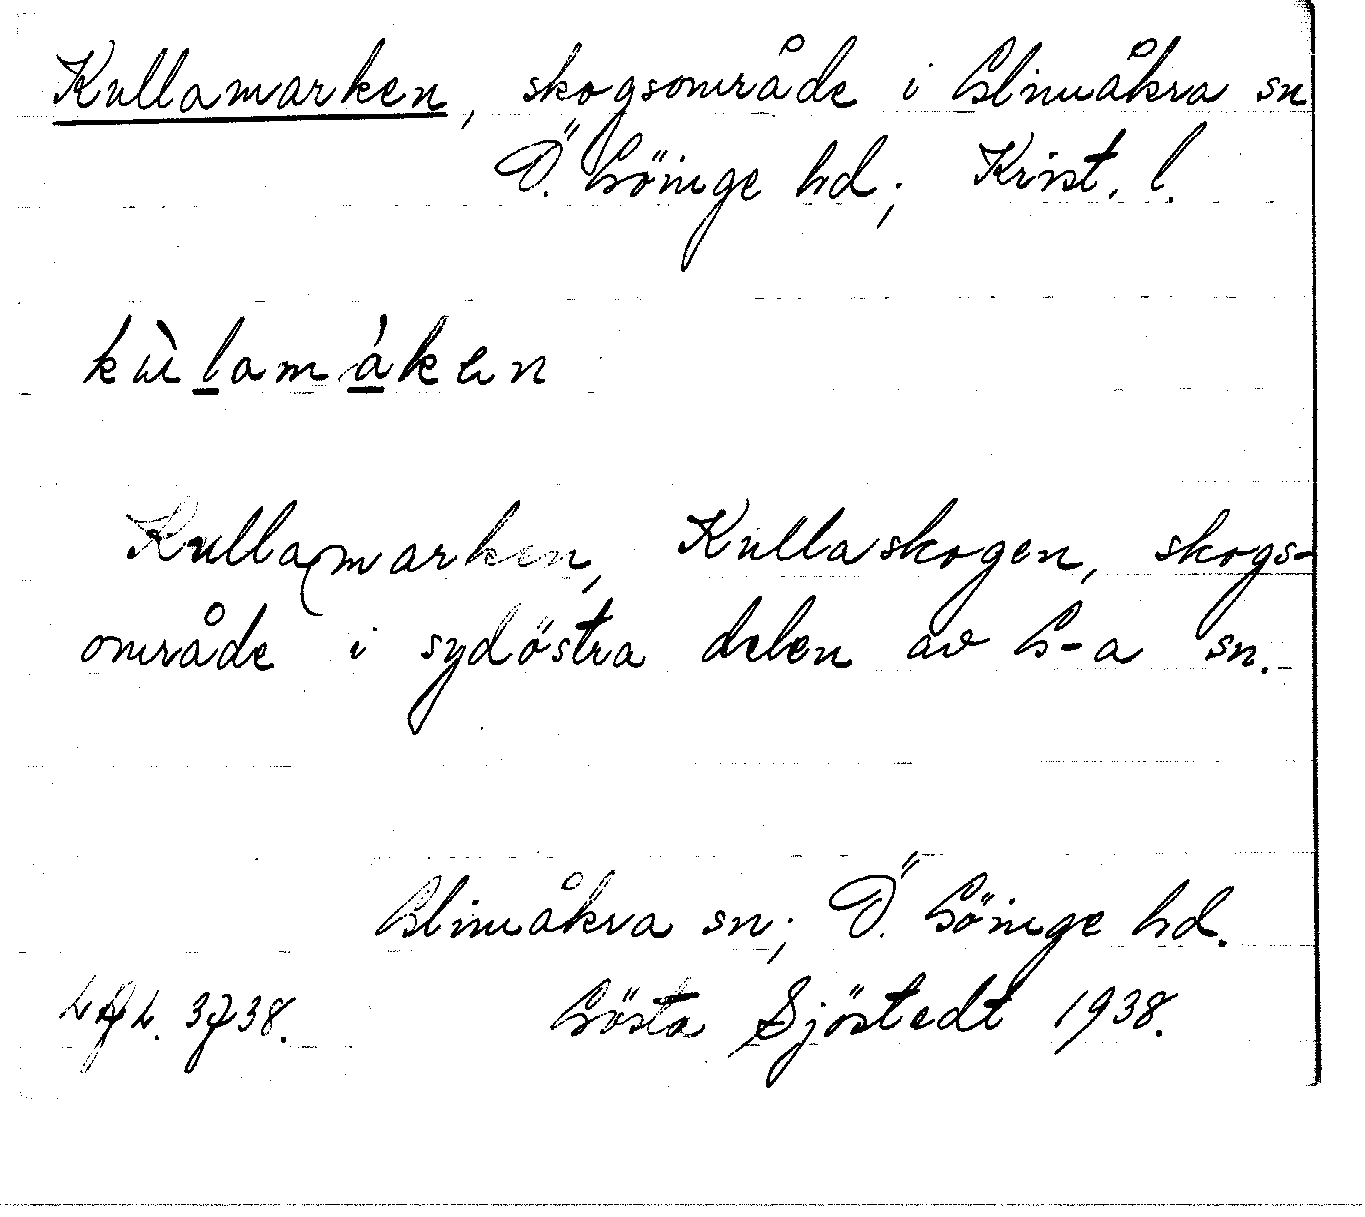 Kullamarken, skogsområde i Glimåkra sn
Ö. Göinge hd; Krist. l.
kùlamákɘn
Kullamarken, Kullaskogen, skogs-
område i sydöstra delen av G-a sn.
Glimåkra sn; Ö. Göinge hd.
Gösta Sjöstedt 1938.